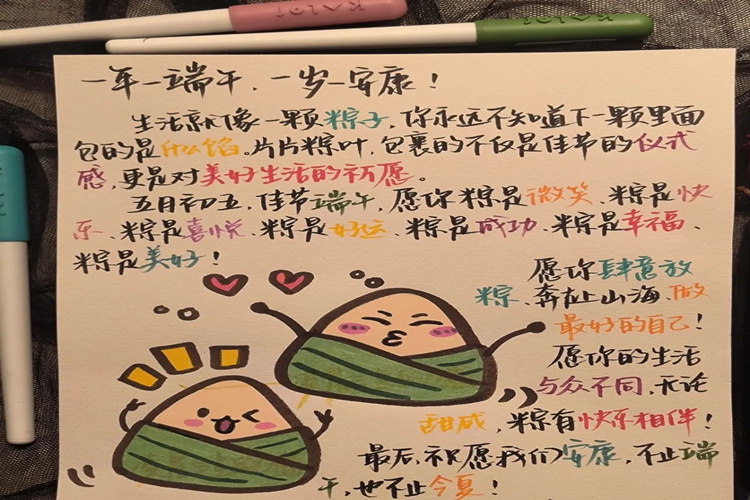 一年一端午，一岁一安康！
生活就像一颗粽子，你永远不知道下一颗里面
包的是什么馅。片片粽叶，包裹的不仅是佳节的仪式
感，更是对美好生活的祈愿。
五月初五，佳节端午，愿你粽是微笑、粽是快
乐、粽是喜悦、粽是好运、粽是成功、粽是幸福、
粽是美好！
愿你肆意放
粽、奔赴山海、做
最好的自己！
愿你的生活
与众不同，无论
甜咸，粽有快乐相伴！
最后，祝愿我们安康，不止端
午，也不止今夏！